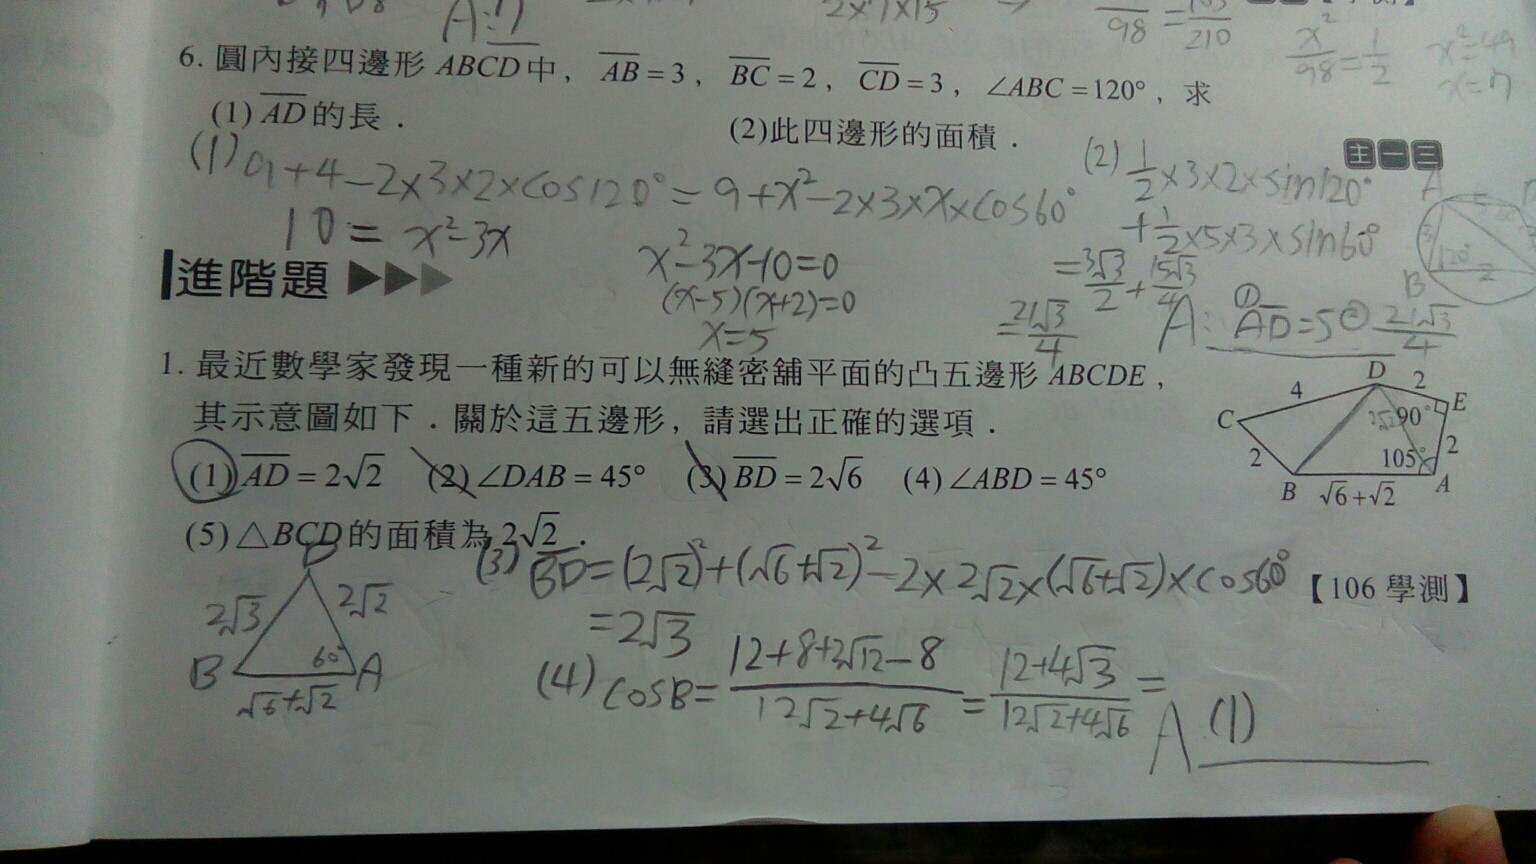 A:
98
210
x²/98=1/2
x²=49
x=7
6. 圓內接四邊形 ABCD 中，AB=3，BC=2，CD=3，∠ABC=120°，求
(1) AD 的長．
(2)此四邊形的面積．
主一三
(1) 9+4-2×3×2×cos120°=9+x²-2×3×x×cos60°
10=x²-3x
x²-3x-10=0
(x-5)(x+2)=0
x=5
(2) 1/2×3×2×sin120°
+1/2×5×3×sin60°
=3√3/2+15√3/4
=21√3/4
A: ① AD=5 ② 21√3/4
A
3
120°
B
2
進階題
1. 最近數學家發現一種新的可以無縫密舖平面的凸五邊形 ABCDE，
其示意圖如下．關於這五邊形，請選出正確的選項．
(1) AD=2√2 (2) ∠DAB=45° (3) BD=2√6 (4) ∠ABD=45°
(5) △BCD的面積為 2√2．
【106 學測】
D
4
2
C
E
2√2
90°
2
2
105°
B
√6+√2
A
D
2√3
2√2
B
60°
A
√6+√2
(3) BD=(2√2)²+(√6+√2)²-2×2√2×(√6+√2)×cos60°
=2√3
(4) cosB=12+8+2√12-8/12√2+4√6=12+4√3/12√2+4√6=
A (1)